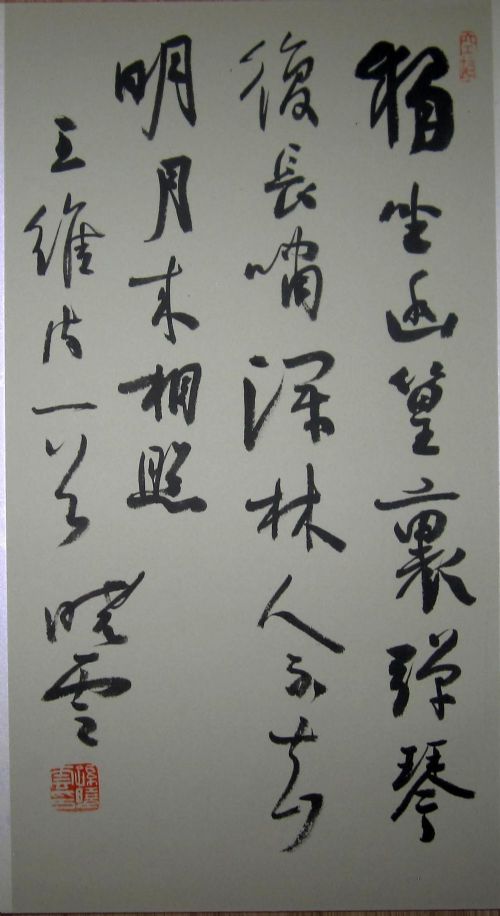 獨坐幽篁裏彈琴
復長嘯深林人不知
明月来相照
王維诗一首 晓雲
孫曉雲印